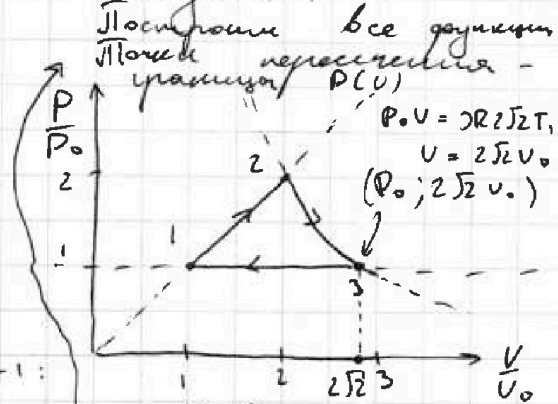 Построим все функции
Точки пересечения -
границы P(V)
P/P₀
P₀V = νR2√2T₁
V = 2√2V₀
(P₀; 2√2V₀)
2
2
1
1
3
-1:
1 2 2√2 3
V/V₀